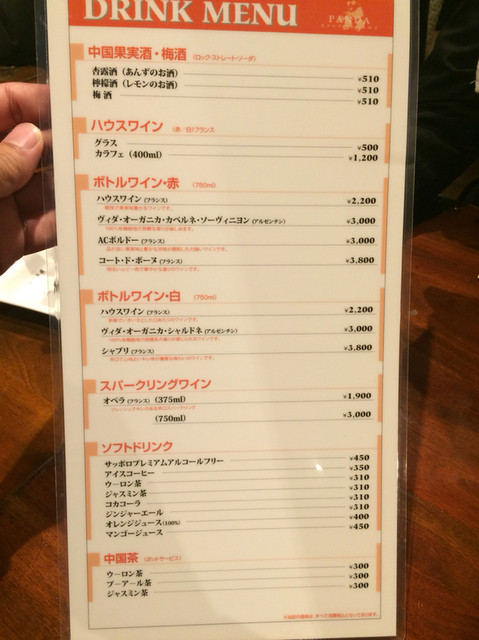 DRINK MENU
PANDA
中国果実酒・梅酒 (ロック・ストレート・ソーダ)
杏露酒(あんずのお酒) ¥510
檸檬酒(レモンのお酒) ¥510
梅酒 ¥510
ハウスワイン (赤/白)フランス
グラス ¥500
カラフェ(400ml) ¥1,200
ボトルワイン・赤 (750ml)
ハウスワイン(フランス) ¥2,200
ヴィダ・オーガニカ・カベルネ・ソーヴィニヨン(アルゼンチン) ¥3,000
ACボルドー(フランス) ¥3,000
コート・ド・ボーヌ(フランス) ¥3,800
ボトルワイン・白 (750ml)
ハウスワイン(フランス) ¥2,200
ヴィダ・オーガニカ・シャルドネ(アルゼンチン) ¥3,000
シャブリ(フランス) ¥3,800
スパークリングワイン
オペラ(フランス)(375ml) ¥1,900
(750ml) ¥3,000
ソフトドリンク
サッポロプレミアムアルコールフリー ¥450
アイスコーヒー ¥350
ウーロン茶 ¥310
ジャスミン茶 ¥310
コカコーラ ¥310
ジンジャーエール ¥310
オレンジジュース(100%) ¥400
マンゴージュース ¥450
中国茶 (ポットサービス)
ウーロン茶 ¥300
プーアール茶 ¥300
ジャスミン茶 ¥300